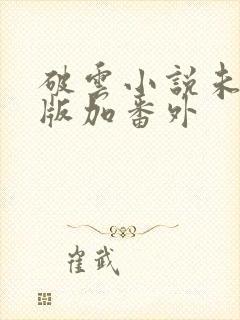 破雲小說未
版加番外
崔武